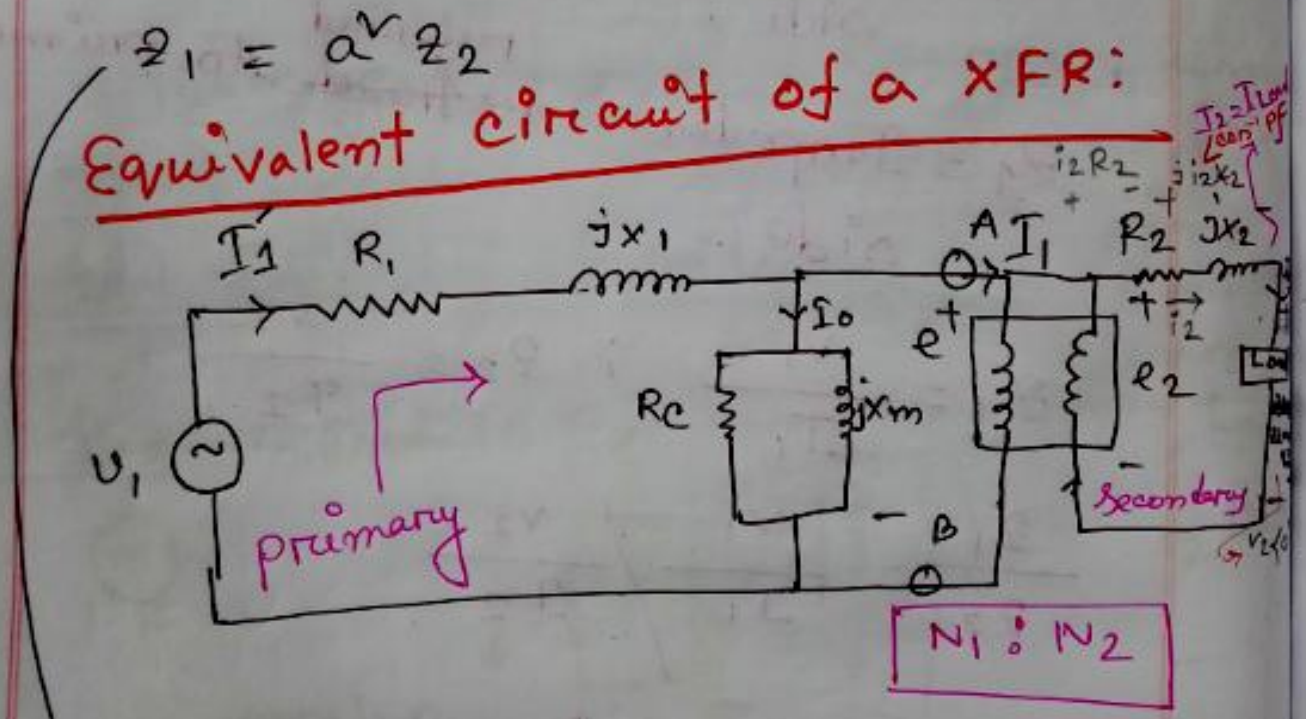 z₁ = a² z₂
Equivalent circuit of a XFR:
I₂ = I Load
i₂R₂ ji₂x₂
+ - +
I₁' R₁ jx₁ A I₁ R₂ jx₂
I₀ e + + i₂
Rc jxm e₂
v₁
primary
- B - secondary
N₁ : N₂